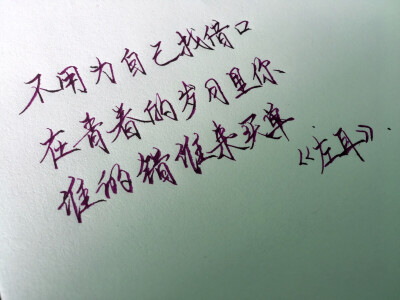 不用为自己找借口
在青春的岁月里你
谁的错谁来买单
《左耳》.